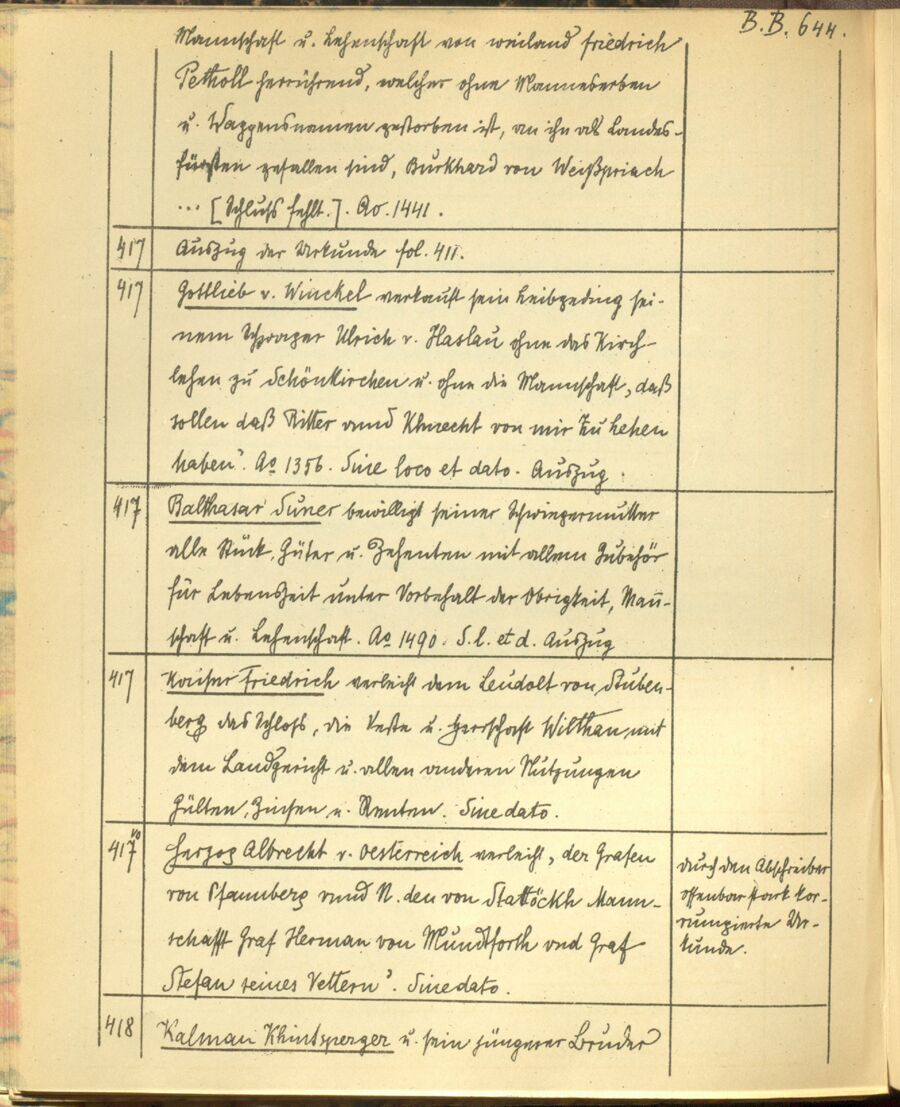 B. B. 644.
Mannschaft u. Lehenschaft von weiland Friedrich
Petholl herrührend, welcher ohne Manneserben
u. Wappensnamen gestorben ist, an ihn als Landes-
fürsten gefallen sind, Burkhard von Weißpriach
... [Schluß fehlt.]. Ao. 1441.
417 Auszug der Urkunde fol. 411.
417 Gottlieb v. Winckel verkauft sein Leibgeding sei-
nem Schwager Ulrich v. Haslau ohne das Kirch-
lehen zu Schönkirchen u. ohne die Mannschaft, „daß
sollen daß Ritter vnnd Khnecht von mir Zu lehen
haben". Ao 1356. Sine loco et dato. Auszug.
417 Balthasar Tuner bewilligt seiner Schwiegermutter
alle Stück, Güter u. Zehenten mit allem Zubehör
für Lebenszeit unter Vorbehalt der Obrigkeit, Mañ-
schaft u. Lehenschaft. Ao 1490. S. l. et d. Auszug
417 Kaiser Friedrich verleiht dem Leudolt von Stuben-
berg das Schloß, die Veste u. Herrschaft Wilthan mit
dem Landgericht u. allen anderen Nutzungen
Gülten, Zinsen u. Renten. Sine dato.
417 vo Herzog Albrecht v. Oesterreich verleiht „der Grafen
von Pfannberg vnnd N. den von Stattöckh Mann-
schafft Graf Herman von Mundtforth vnd Graf
Stefan seines Vettern". Sine dato.
durch den Abschreiber
offenbar stark kor-
rumpierte Ur-
kunde.
418 Kalman Khintsperger u. sein jüngerer Bruder